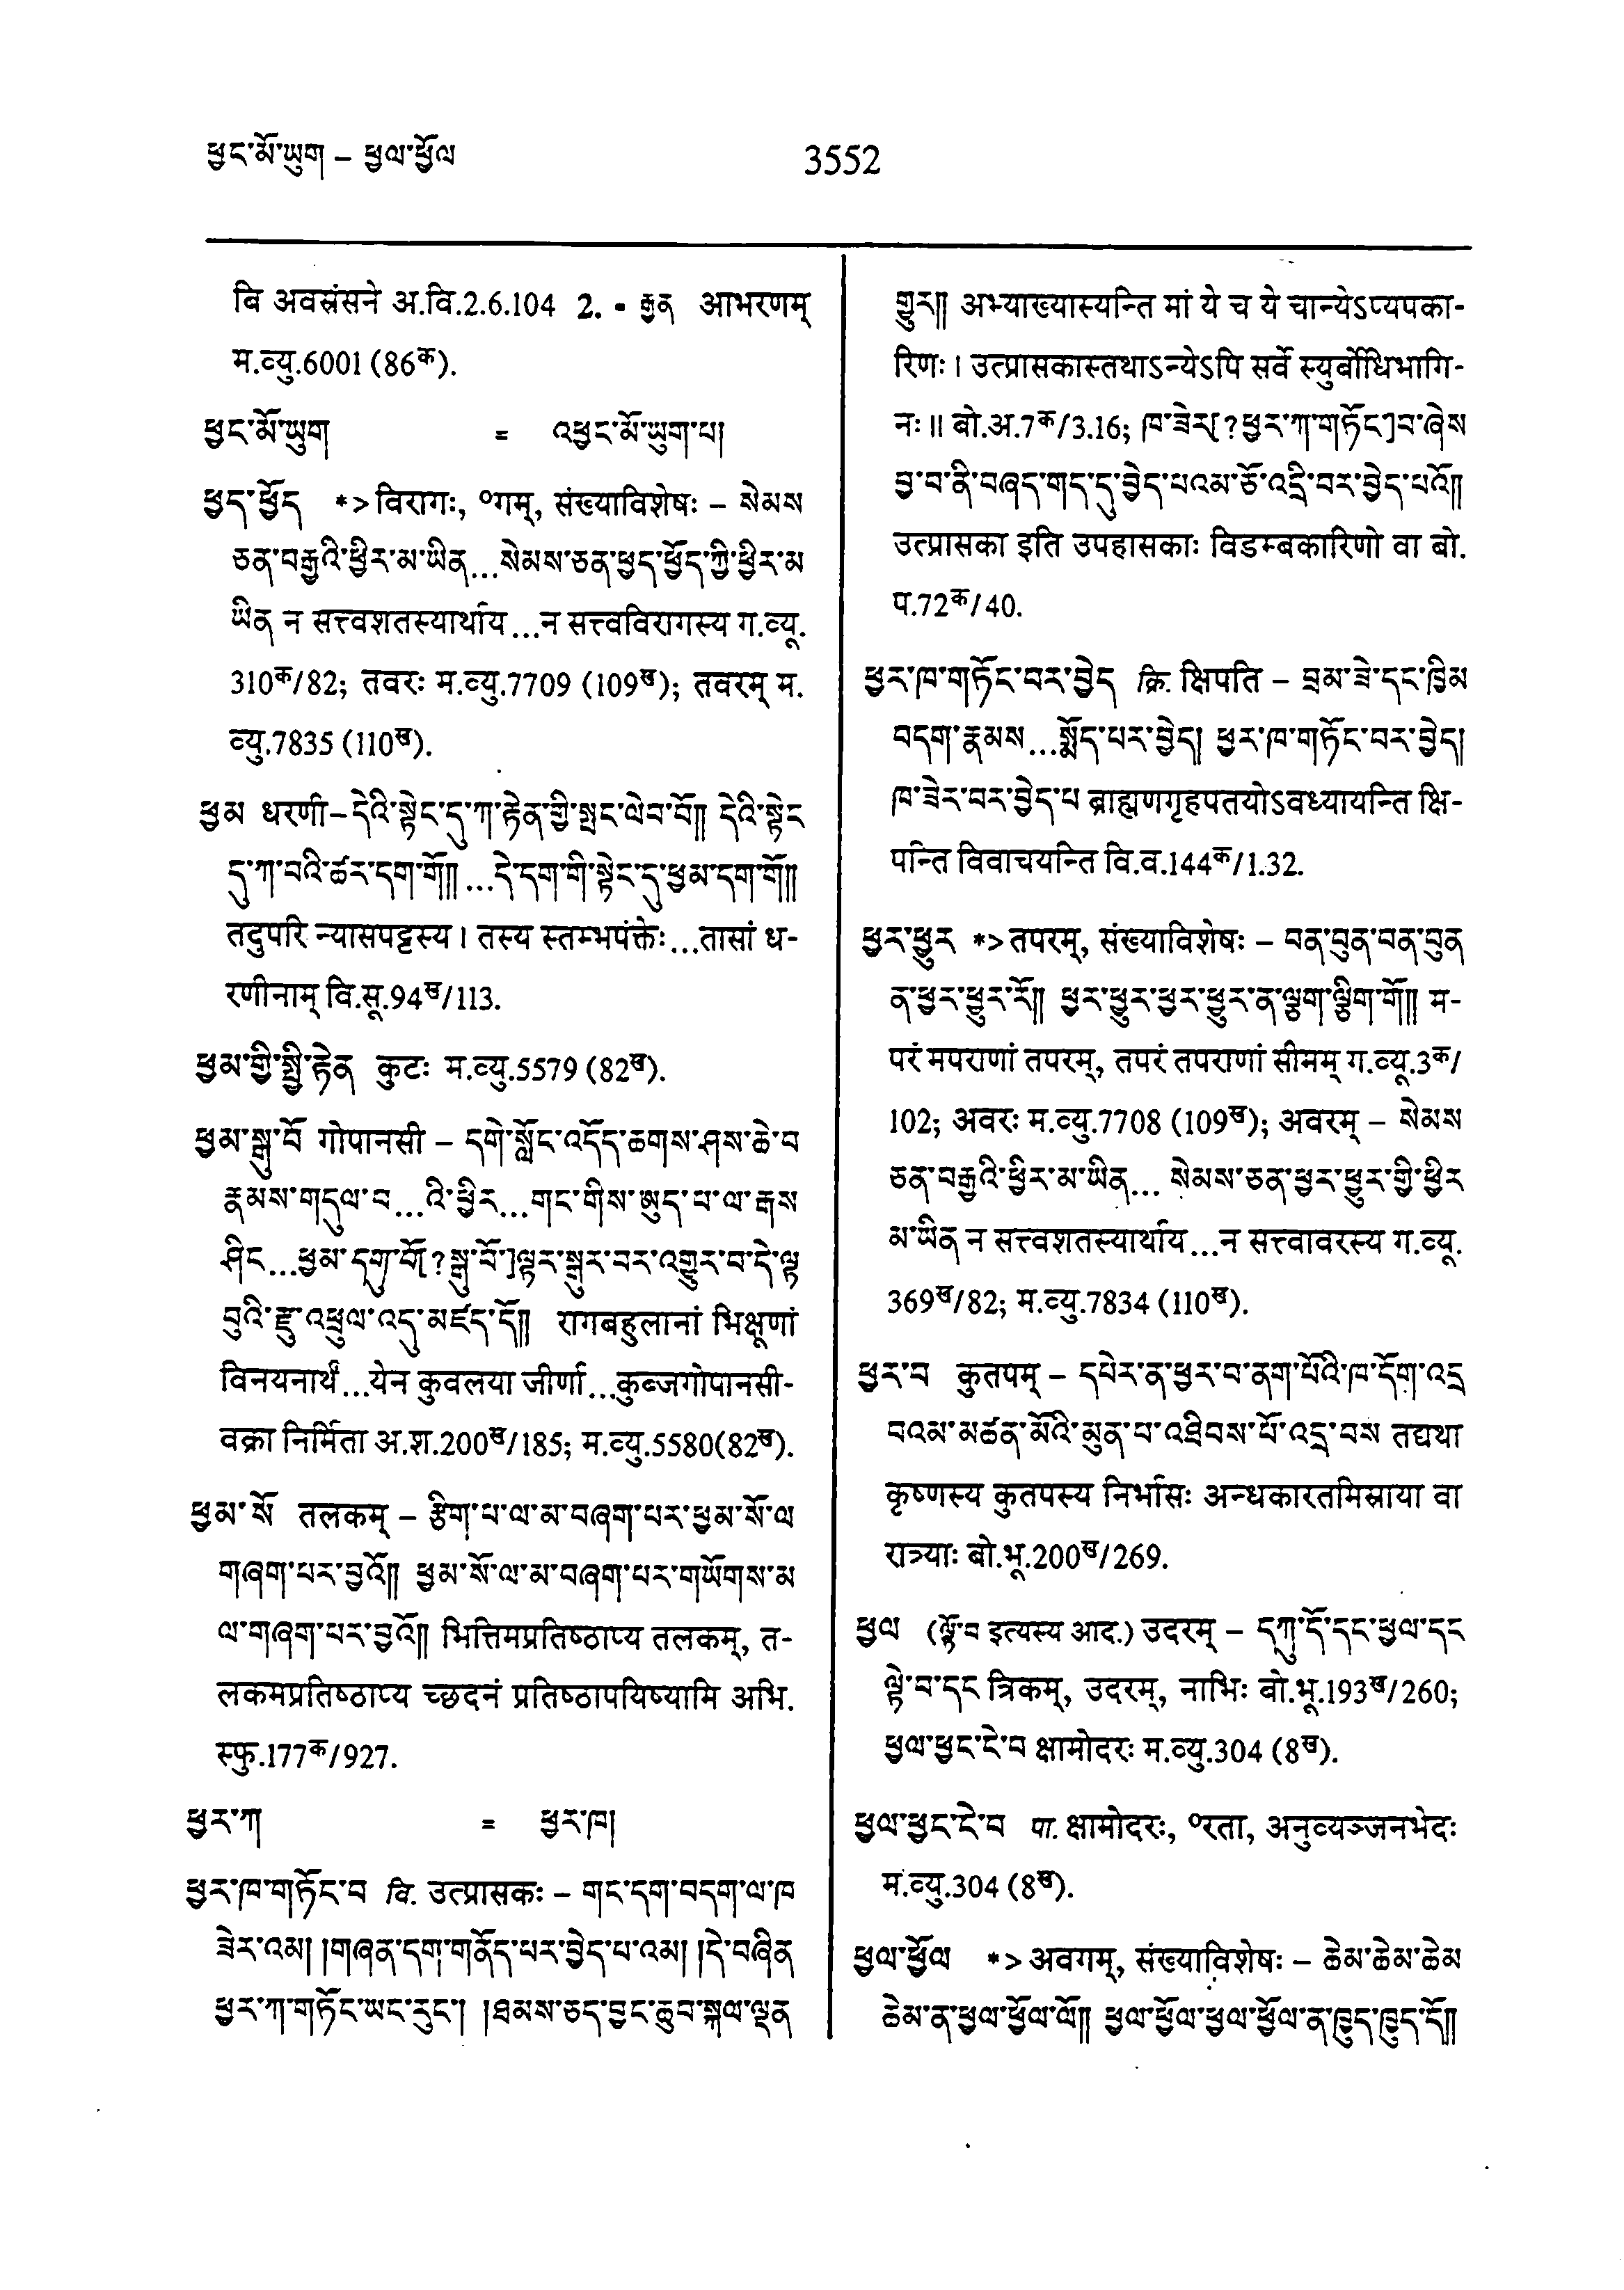 ཕྱང་མོ་ཡུག – ཕྱལ་ཕྱོལ
3552
बि अवस्रंसने अ.वि.2.6.104 2. ▪ རྒྱན आभरणम्
म.व्यु.6001 (86क).
ཕྱང་མོ་ཡུག = འཕྱང་མོ་ཡུག་པ།
ཕྱད་ཕྱོད *> विरागः, ०गम्, संख्याविशेषः – སེམས
ཅན་བརྒྱའི་ཕྱིར་མ་ཡིན...སེམས་ཅན་ཕྱད་ཕྱོད་ཀྱི་ཕྱིར་མ
ཡིན न सत्त्वशतस्यार्थाय...न सत्त्वविरागस्य ग.व्यू.
310क/82; तवरः म.व्यु.7709 (109ख); तवरम् म.
व्यु.7835 (110ख).
ཕྱམ धरणी–དེའི་སྟེང་དུ་ཀ་རྟེན་གྱི་སྤང་ལེབ་བོ།། དེའི་སྟེང
དུ་ཀ་བའི་ཚར་དག་གོ།། ...དེ་དག་གི་སྟེང་དུ་ཕྱམ་དག་གོ།།
तदुपरि न्यासपट्टस्य। तस्य स्तम्भपंक्तेः...तासां ध-
रणीनाम् वि.सू.94ख/113.
ཕྱམ་གྱི་སྤྱི་རྟེན कुटः म.व्यु.5579 (82ख).
ཕྱམ་སྒུ་བོ गोपानसी – དགེ་སློང་འདོད་ཆགས་ཤས་ཆེ་བ
རྣམས་གདུལ་བ...འི་ཕྱིར...གང་གིས་ཨུད་པ་ལ་རྒས
ཤིང...ཕྱམ་དགུ་བོ[?སྒུ་བོ་]ལྟར་སྒུར་བར་འགྱུར་བ་དེ་ལྟ
བུའི་རྫུ་འཕྲུལ་འདུ་མཛད་དོ།། रागबहुलानां भिक्षूणां
विनयनार्थं...येन कुवलया जीर्णा...कुब्जगोपानसी-
वक्रा निर्मिता अ.श.200ख/185; म.व्यु.5580(82ख).
ཕྱམ་སོ तलकम् – རྩིག་པ་ལ་མ་བཞག་པར་ཕྱམ་སོ་ལ
གཞག་པར་བྱའོ།། ཕྱམ་སོ་ལ་མ་བཞག་པར་གཡོགས་མ
ལ་གཞག་པར་བྱའོ།། भित्तिमप्रतिष्ठाप्य तलकम्, त-
लकमप्रतिष्ठाप्य च्छदनं प्रतिष्ठापयिष्यामि अभि.
स्फु.177क/927.
ཕྱར་ཀ = ཕྱར་ཁ།
ཕྱར་ཁ་གཏོང་བ वि. उत्प्रासकः – གང་དག་བདག་ལ་ཁ
ཟེར་འམ། །གཞན་དག་གནོད་པར་བྱེད་པ་འམ། །དེ་བཞིན
ཕྱར་ཀ་གཏོང་ཡང་རུང་། །ཐམས་ཅད་བྱང་ཆུབ་སྐལ་ལྡན
གྱུར།། अभ्याख्यास्यन्ति मां ये च ये चान्येऽप्यपका-
रिणः। उत्प्रासकास्तथाऽन्येऽपि सर्वे स्युर्बोधिभागि-
नः॥ बो.अ.7क/3.16; ཁ་ཟེར[?ཕྱར་ཀ་གཏོང་]བ་ཞེས
བྱ་བ་ནི་བཞད་གད་དུ་བྱེད་པའམ་ཅོ་འདྲི་བར་བྱེད་པའོ།།
उत्प्रासका इति उपहासकाः विडम्बकारिणो वा बो.
प.72क/40.
ཕྱར་ཁ་གཏོང་བར་བྱེད क्रि. क्षिपति – བྲམ་ཟེ་དང་ཁྱིམ
བདག་རྣམས...སྨོད་པར་བྱེད། ཕྱར་ཁ་གཏོང་བར་བྱེད།
ཁ་ཟེར་བར་བྱེད་པ ब्राह्मणगृहपतयोऽवध्यायन्ति क्षि-
पन्ति विवाचयन्ति वि.व.144क/1.32.
ཕྱར་ཕྱུར *> तपरम्, संख्याविशेषः – བན་བུན་བན་བུན
ན་ཕྱར་ཕྱུར་རོ།། ཕྱར་ཕྱུར་ཕྱར་ཕྱུར་ན་ལྷག་ལྷིག་གོ།། म-
परं मपराणां तपरम्, तपरं तपराणां सीमम् ग.व्यू.3क/
102; अवरः म.व्यु.7708 (109ख); अवरम् – སེམས
ཅན་བརྒྱའི་ཕྱིར་མ་ཡིན... སེམས་ཅན་ཕྱར་ཕྱུར་གྱི་ཕྱིར
མ་ཡིན न सत्त्वशतस्यार्थाय...न सत्त्वावरस्य ग.व्यू.
369ख/82; म.व्यु.7834 (110ख).
ཕྱར་བ कुतपम् – དཔེར་ན་ཕྱར་བ་ནག་པོའི་ཁ་དོག་འདྲ
བའམ་མཚན་མོའི་མུན་པ་འཐིབས་པོ་འདྲ་བས तद्यथा
कृष्णस्य कुतपस्य निर्भासः अन्धकारतमिस्राया वा
रात्र्याः बो.भू.200ख/269.
ཕྱལ (ལྟོ་བ इत्यस्य आद.) उदरम् – དཀུ་དོ་དང་ཕྱལ་དང
ལྟེ་བ་དང त्रिकम्, उदरम्, नाभिः बो.भू.193ख/260;
ཕྱལ་ཕྱང་ངེ་བ क्षामोदरः म.व्यु.304 (8ख).
ཕྱལ་ཕྱང་ངེ་བ पा. क्षामोदरः, ०रता, अनुव्यञ्जनभेदः
म.व्यु.304 (8ख).
ཕྱལ་ཕྱོལ *> अवगम्, संख्याविशेषः – ཆེམ་ཆེམ་ཆེམ
ཆེམ་ན་ཕྱལ་ཕྱོལ་ལོ།། ཕྱལ་ཕྱོལ་ཕྱལ་ཕྱོལ་ན་ཁྱུད་ཁྱུད་དོ།།